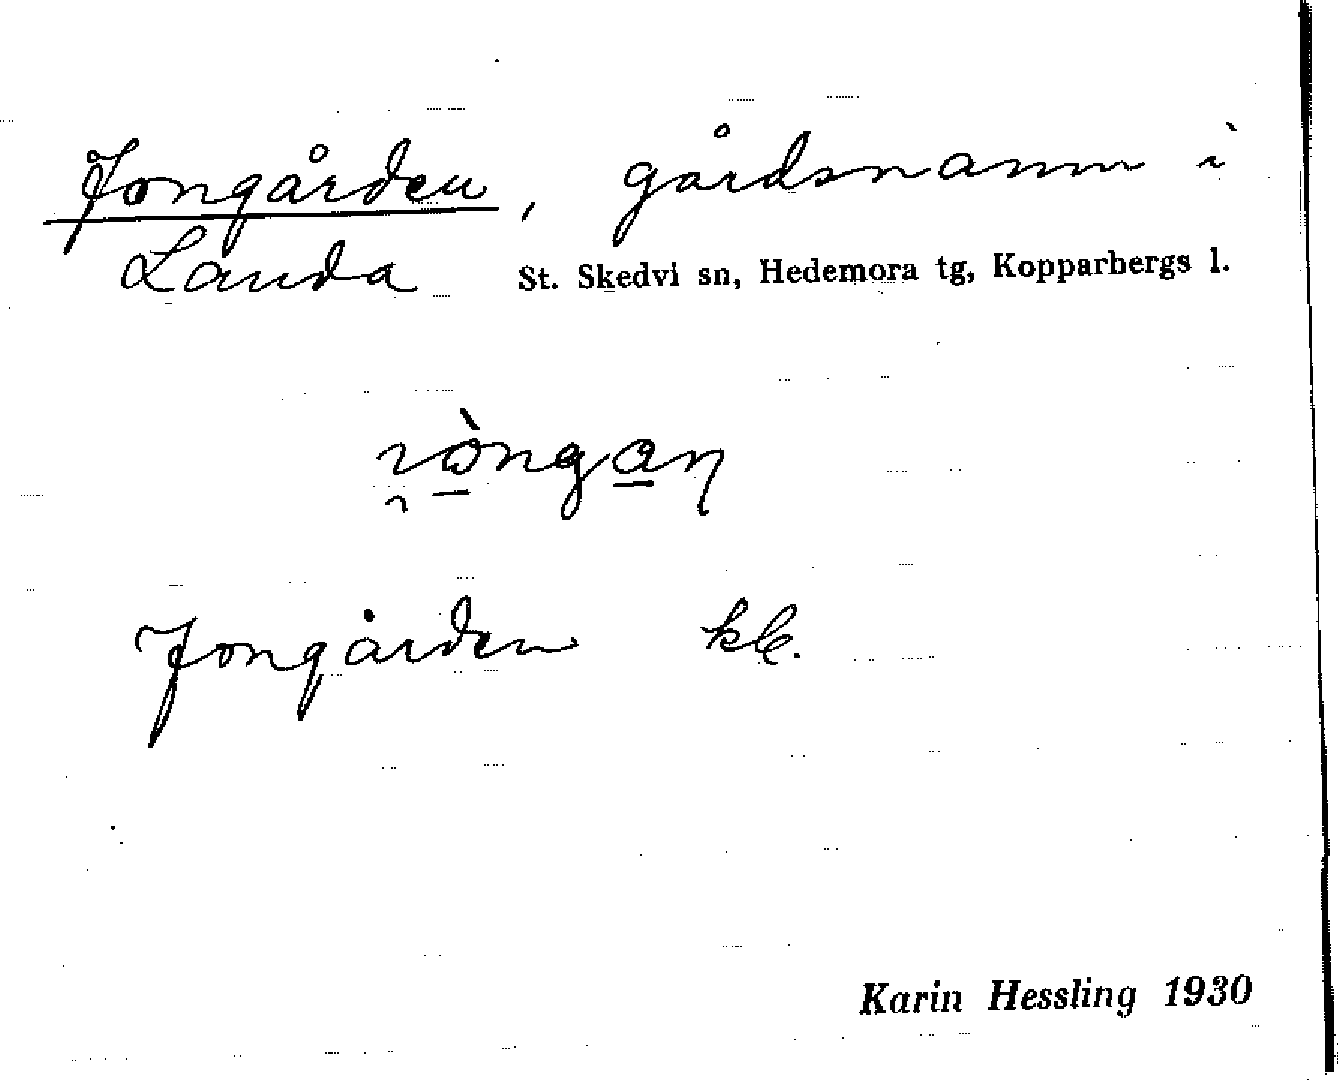 Jongården, gårdsnamn i
Landa St. Skedvi sn, Hedemora tg, Kopparbergs l.
Jongården kk.
Karin Hessling 1930